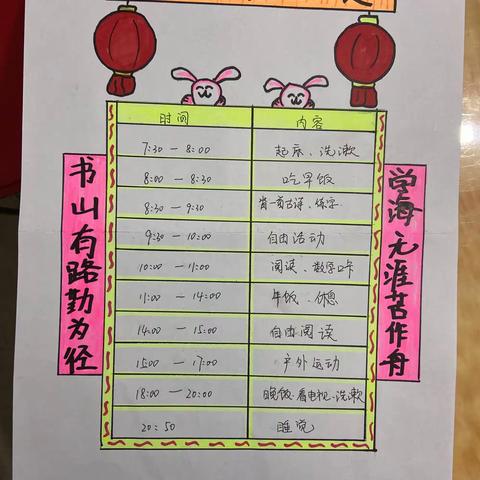 时间 内容
7:30 — 8:00 起床、洗漱
8:00 — 8:30 吃早饭
8:30 — 9:30 背一首古诗、练字
9:30 — 10:00 自由活动
10:00 — 11:00 阅读、数学口卡
11:00 — 14:00 午饭、休息
14:00 — 15:00 自由阅读
15:00 — 17:00 户外运动
18:00 — 20:00 晚饭、看电视、洗漱
20:50 睡觉
书山有路勤为径
学海无涯苦作舟